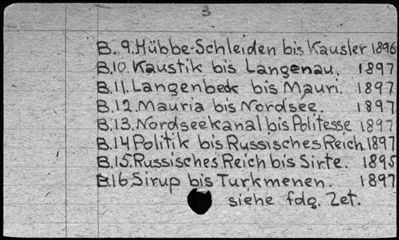 3
B. 9.Hübbe-Schleiden bis Kausler 1896
B.10. Kaustik bis Langenau. 1897
B.11. Langenbeck bis Mauri. 1897
B.12. Mauria bis Nordsee. 1897
B.13. Nordseekanal bis Politesse 1897
B.14 Politik bis Russisches Reich 1897
B.15. Russisches Reich bis Sirte. 1895
B.16. Sirup bis Turkmenen. 1897
siehe fdg. Zet.